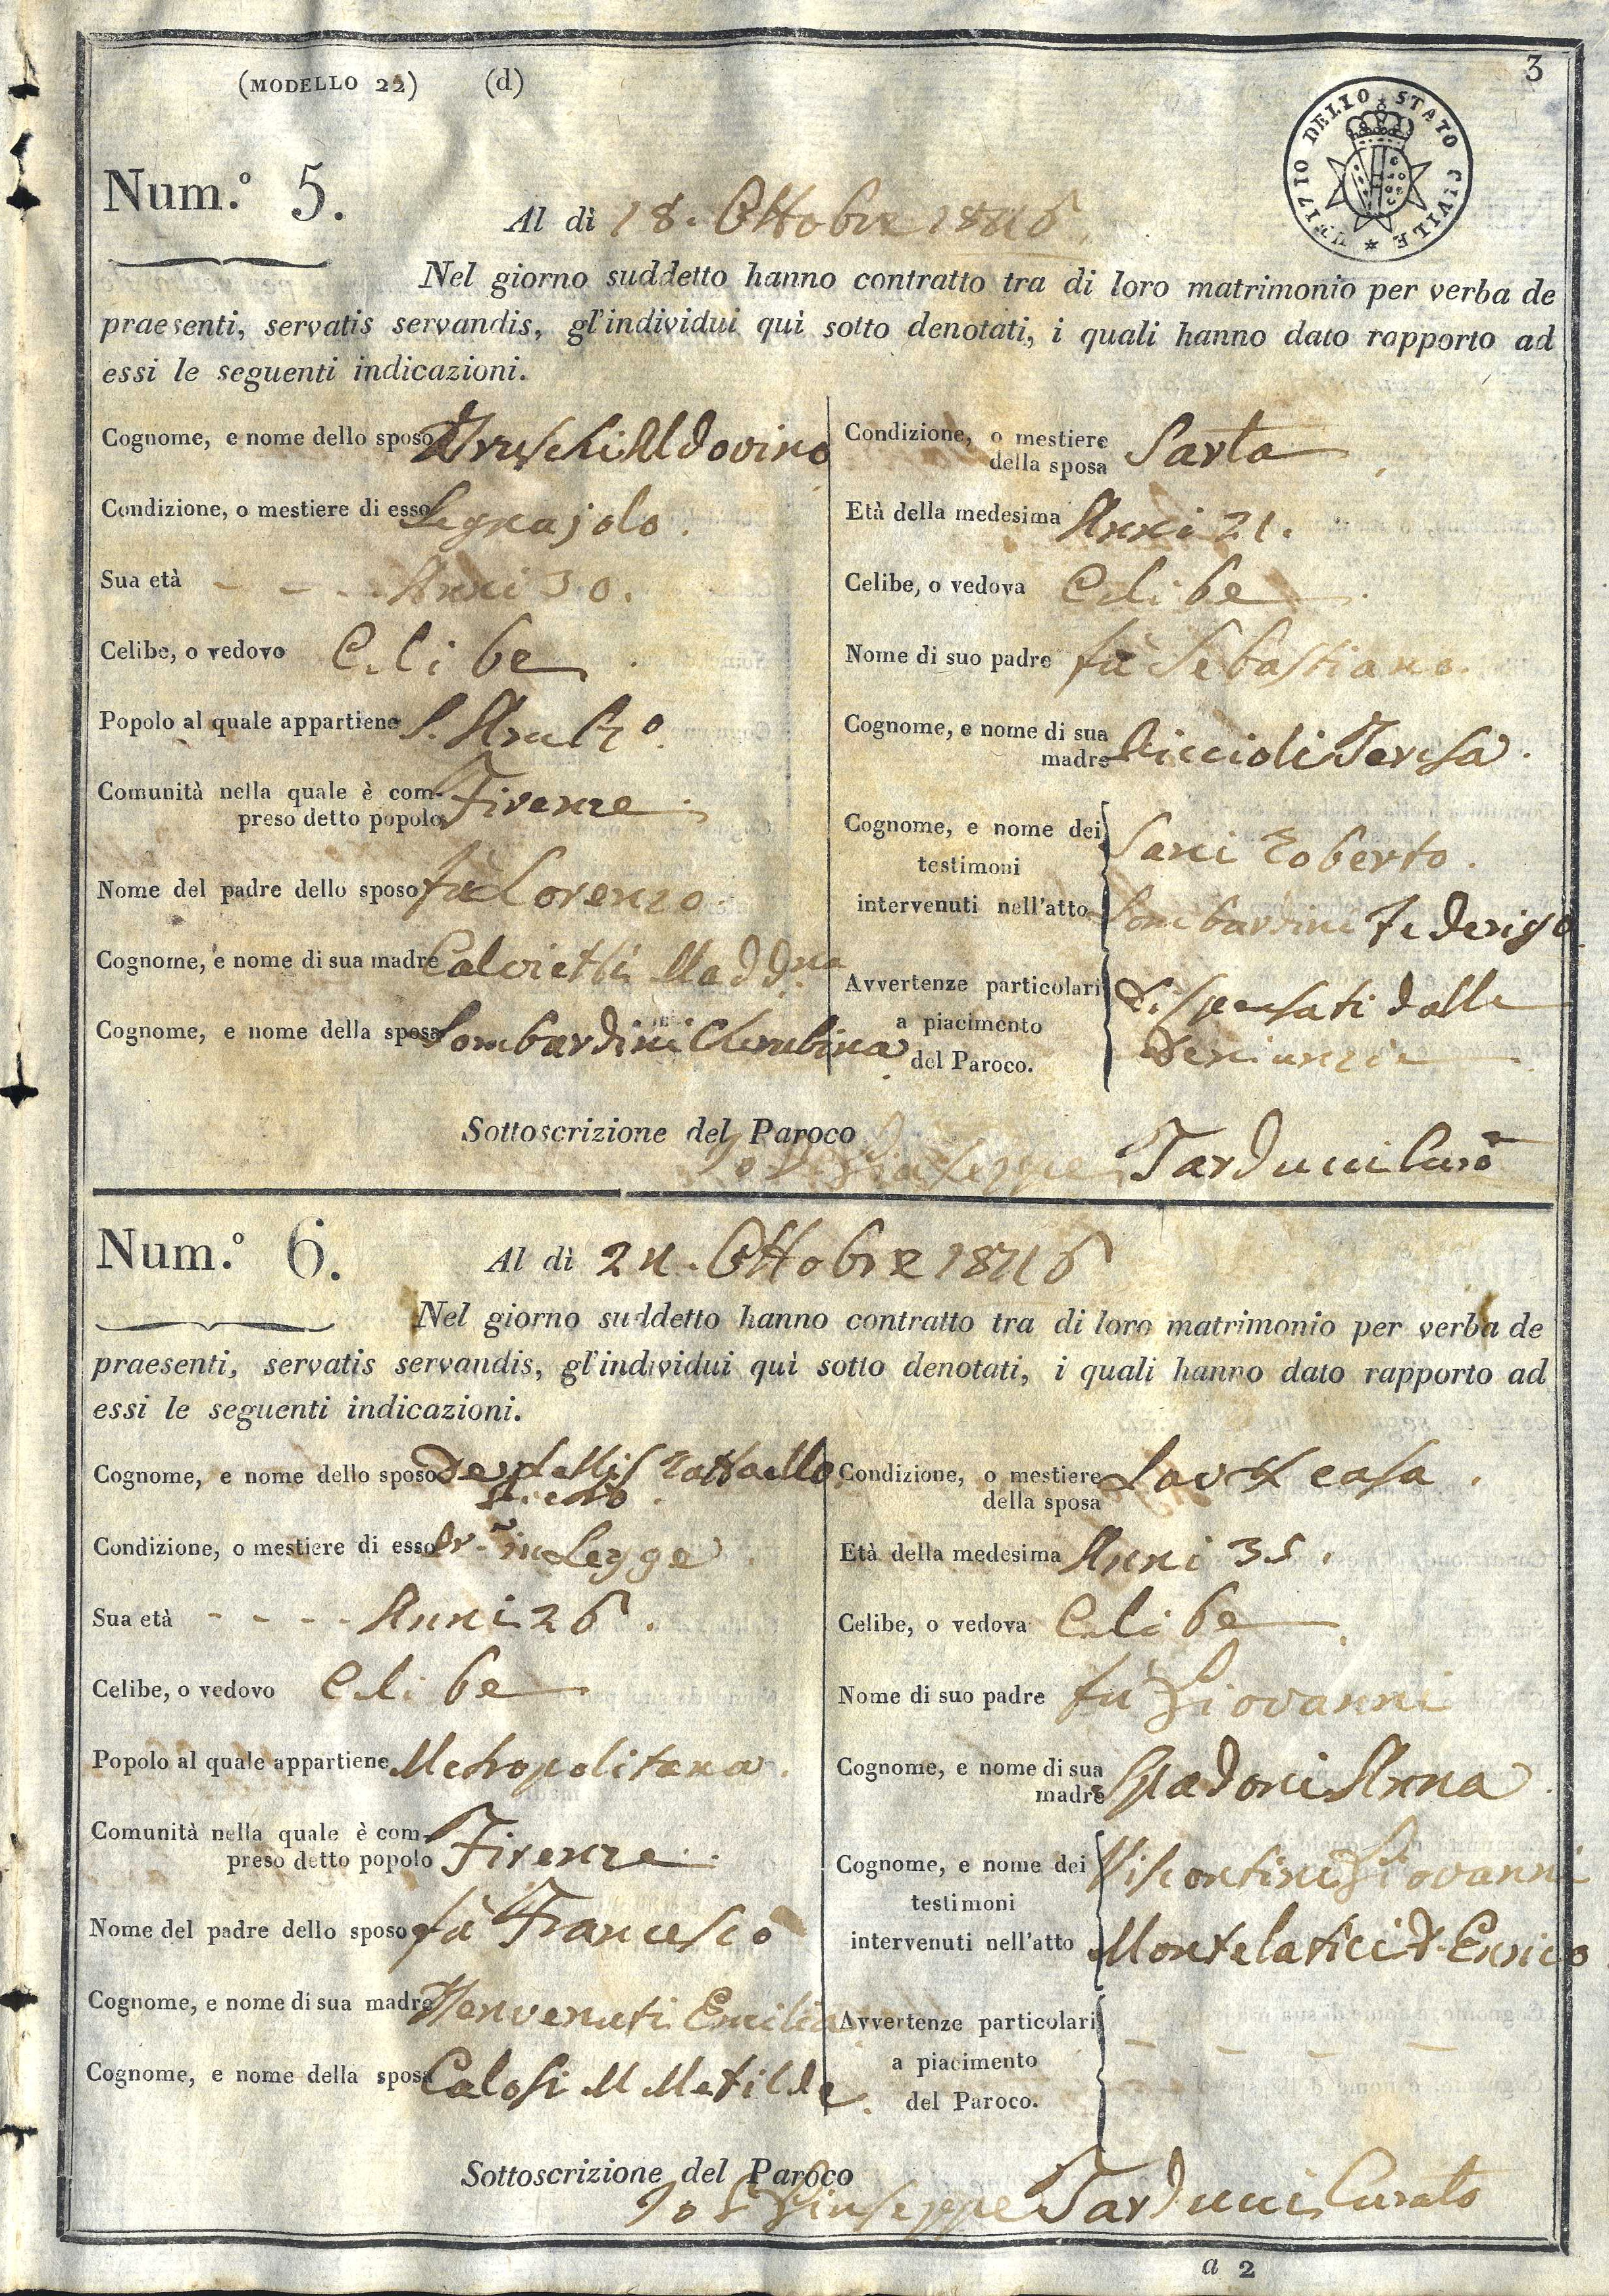 3
(MODELLO 22) (d)
UFIZIO DELLO STATO CIVILE *
Num.° 5.
Al dì 18. Ottobre 1846.
Nel giorno suddetto hanno contratto tra di loro matrimonio per verba de
praesenti, servatis servandis, gl'individui quì sotto denotati, i quali hanno dato rapporto ad
essi le seguenti indicazioni.
Cognome, e nome dello sposo Aldovino
Condizione, o mestiere di esso Legnajolo.
Sua età - - - Anni 30.
Celibe, o vedovo Celibe.
Popolo al quale appartiene S.
Comunità nella quale è com-
preso detto popolo Firenze.
Nome del padre dello sposo fù Lorenzo.
Cognome, e nome di sua madre Madd.na
Cognome, e nome della sposa Lombardini Cherubina
Condizione, o mestiere
della sposa Sarta
Età della medesima Anni 21.
Celibe, o vedova Celibe
Nome di suo padre fù Sebastiano.
Cognome, e nome di sua
madre Riccioli Teresa.
Cognome, e nome dei
testimoni
intervenuti nell'atto
Sani Roberto.
Lombardini Federigo
Avvertenze particolari
a piacimento
del Paroco.
Dispensati dalle
Denunzie
Sottoscrizione del Paroco
Io Giuseppe Tarducci Curo
Num.° 6.
Al dì 24. Ottobre 1846
Nel giorno suddetto hanno contratto tra di loro matrimonio per verba de
praesenti, servatis servandis, gl'individui quì sotto denotati, i quali hanno dato rapporto ad
essi le seguenti indicazioni.
Cognome, e nome dello sposo Raffaello
Condizione, o mestiere di esso in Legge.
Sua età - - - - Anni 26.
Celibe, o vedovo Celibe
Popolo al quale appartiene Metropolitana.
Comunità nella quale è com-
preso detto popolo Firenze.
Nome del padre dello sposo fù Francesco
Cognome, e nome di sua madre Benvenuti Emilia
Cognome, e nome della sposa Calosi M Metilde.
Condizione, o mestiere
della sposa casa.
Età della medesima Anni 35.
Celibe, o vedova Celibe
Nome di suo padre fù Giovanni
Cognome, e nome di sua
madre Spadoni Anna.
Cognome, e nome dei
testimoni
intervenuti nell'atto
Viscontini Giovanni
Montelatici D. Enrico
Avvertenze particolari
a piacimento
del Paroco.
- - - -
Sottoscrizione del Paroco
Io Giuseppe Tarducci Curato
a 2